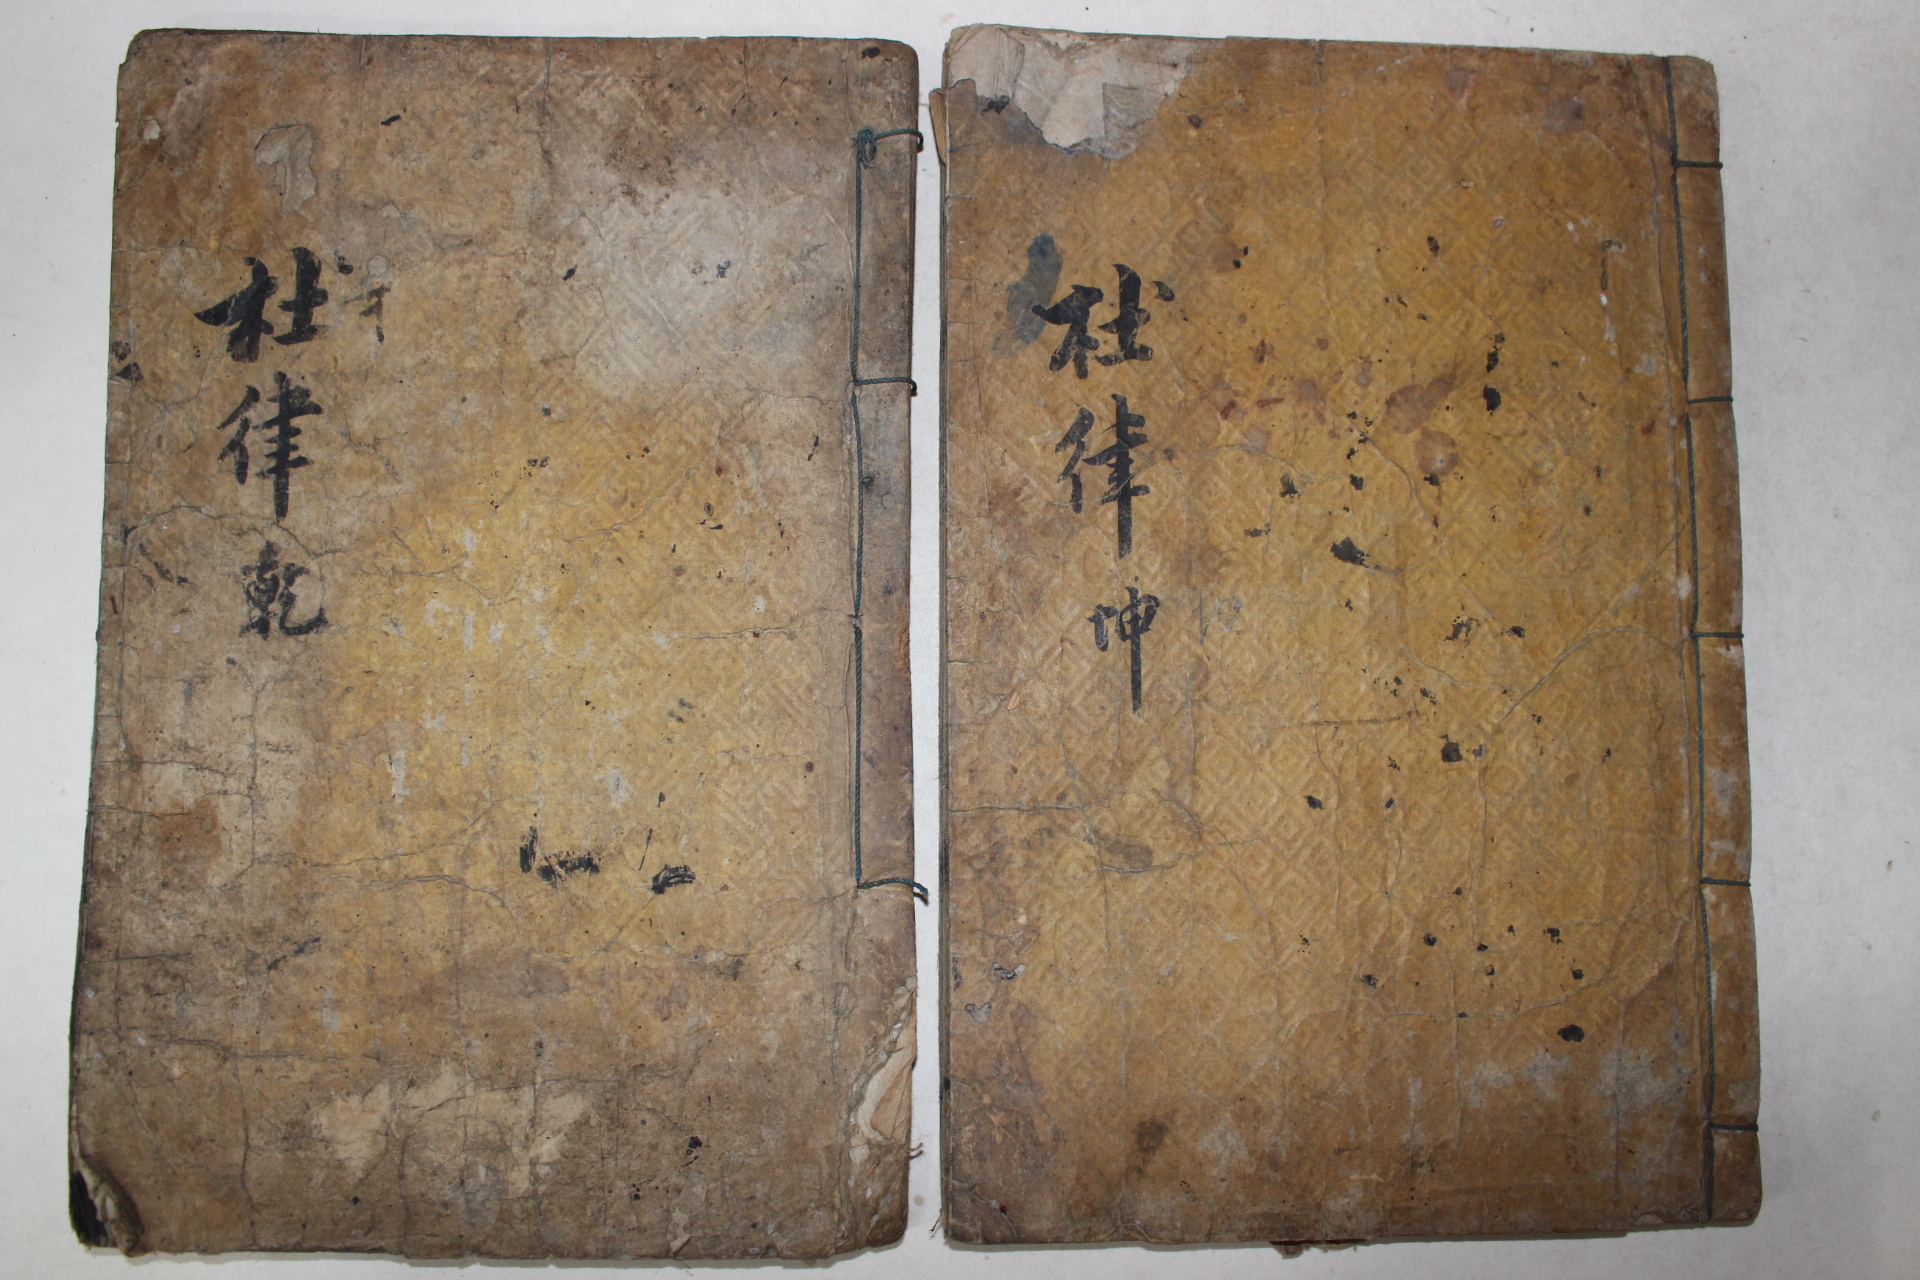 杜律 乾
杜律 坤